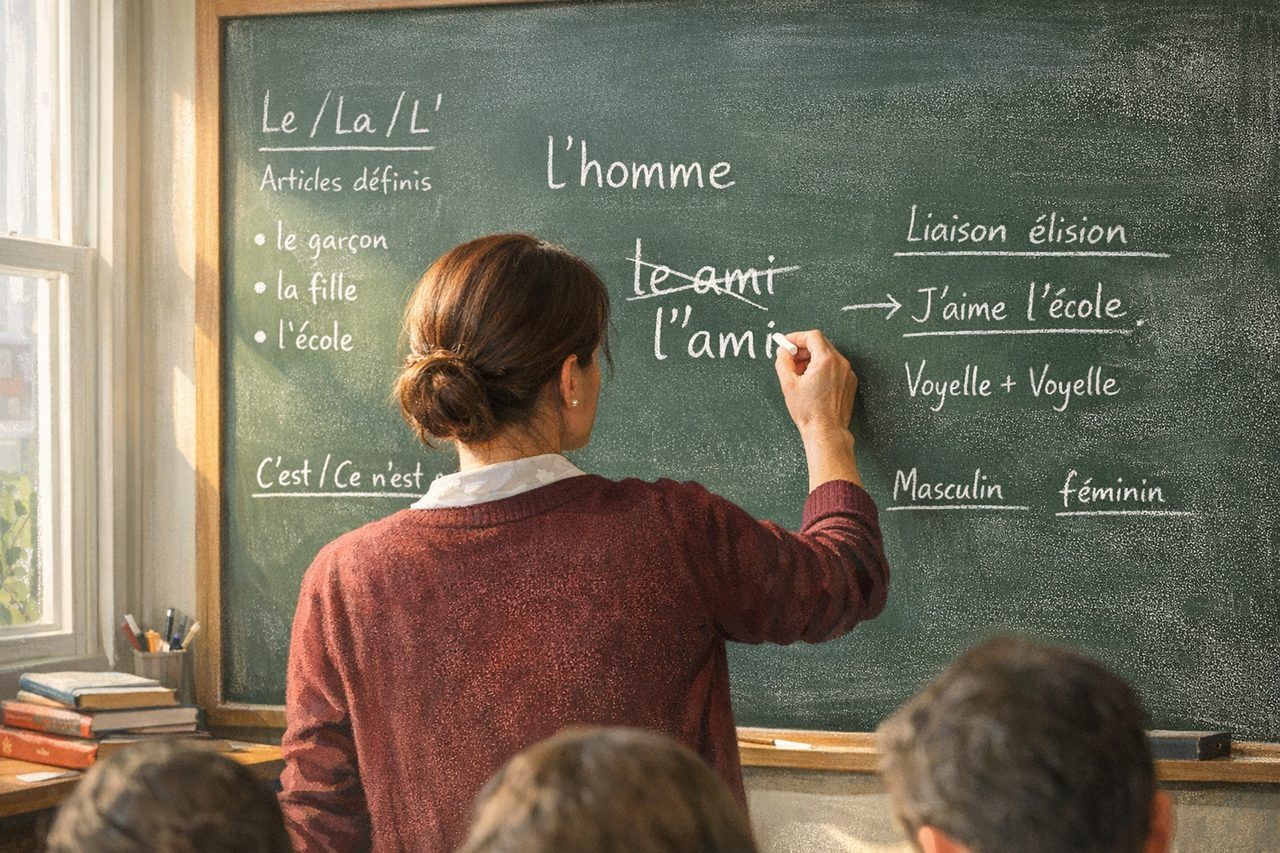 Le / La / L'
Articles définis
• le garçon
• la fille
• l'école
C'est / Ce n'est
l'homme
le ami
l''ami
Liaison élision
→ J'aime l'école
Voyelle + Voyelle
Masculin féminin